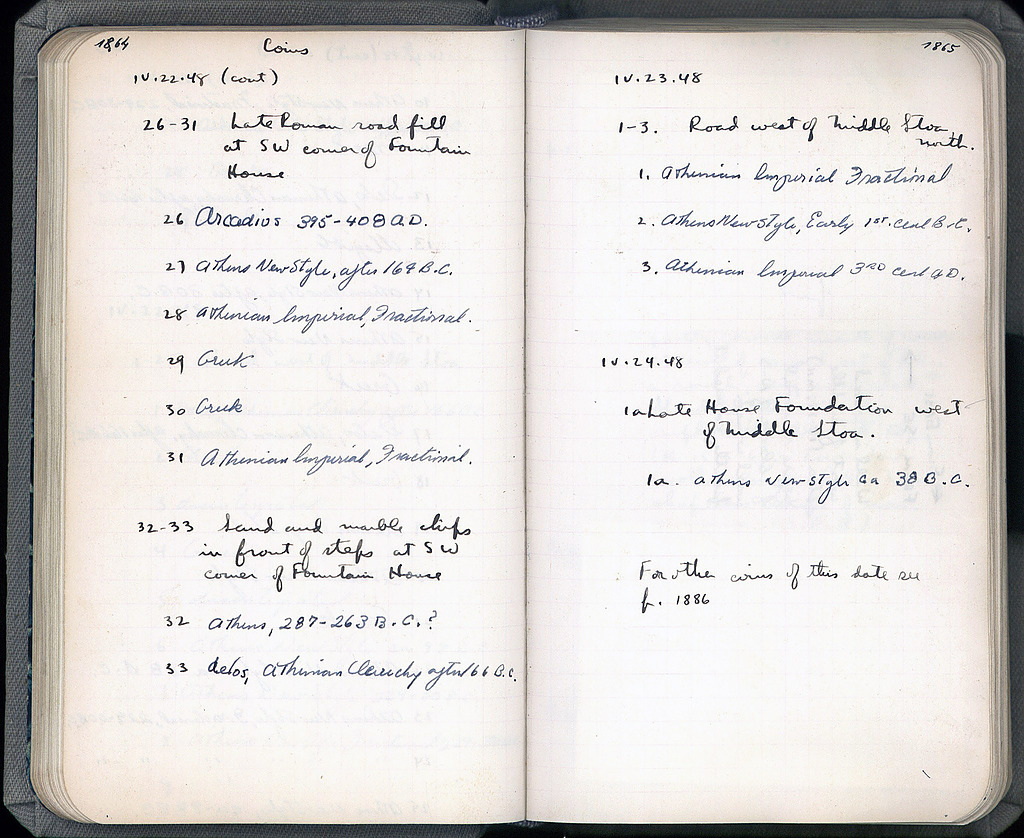 1864
Coins
IV.22.48 (cont)
26-31 Late Roman road fill
at SW corner of Fountain
House
26 Arcadios 395-408 A.D.
27 Athens New Style, after 164 B.C.
28 Athenian Imperial, Fractional.
29 Greek
30 Greek
31 Athenian Imperial, Fractional.
32-33 Sand and marble chips
in front of steps at SW
corner of Fountain House
32 Athens, 287-263 B.C.?
33 Delos, Athenian Cleruchy after 166 B.C.
1865
IV.23.48
1-3. Road west of Middle Stoa,
north.
1. Athenian Imperial Fractional
2. Athens New Style, Early 1st. cent B.C.
3. Athenian Imperial 3RD cent A.D.
IV.24.48
1a Late House Foundation west
of Middle Stoa.
1a. Athens New-Style ca 38 B.C.
For other coins of this date see
p. 1886